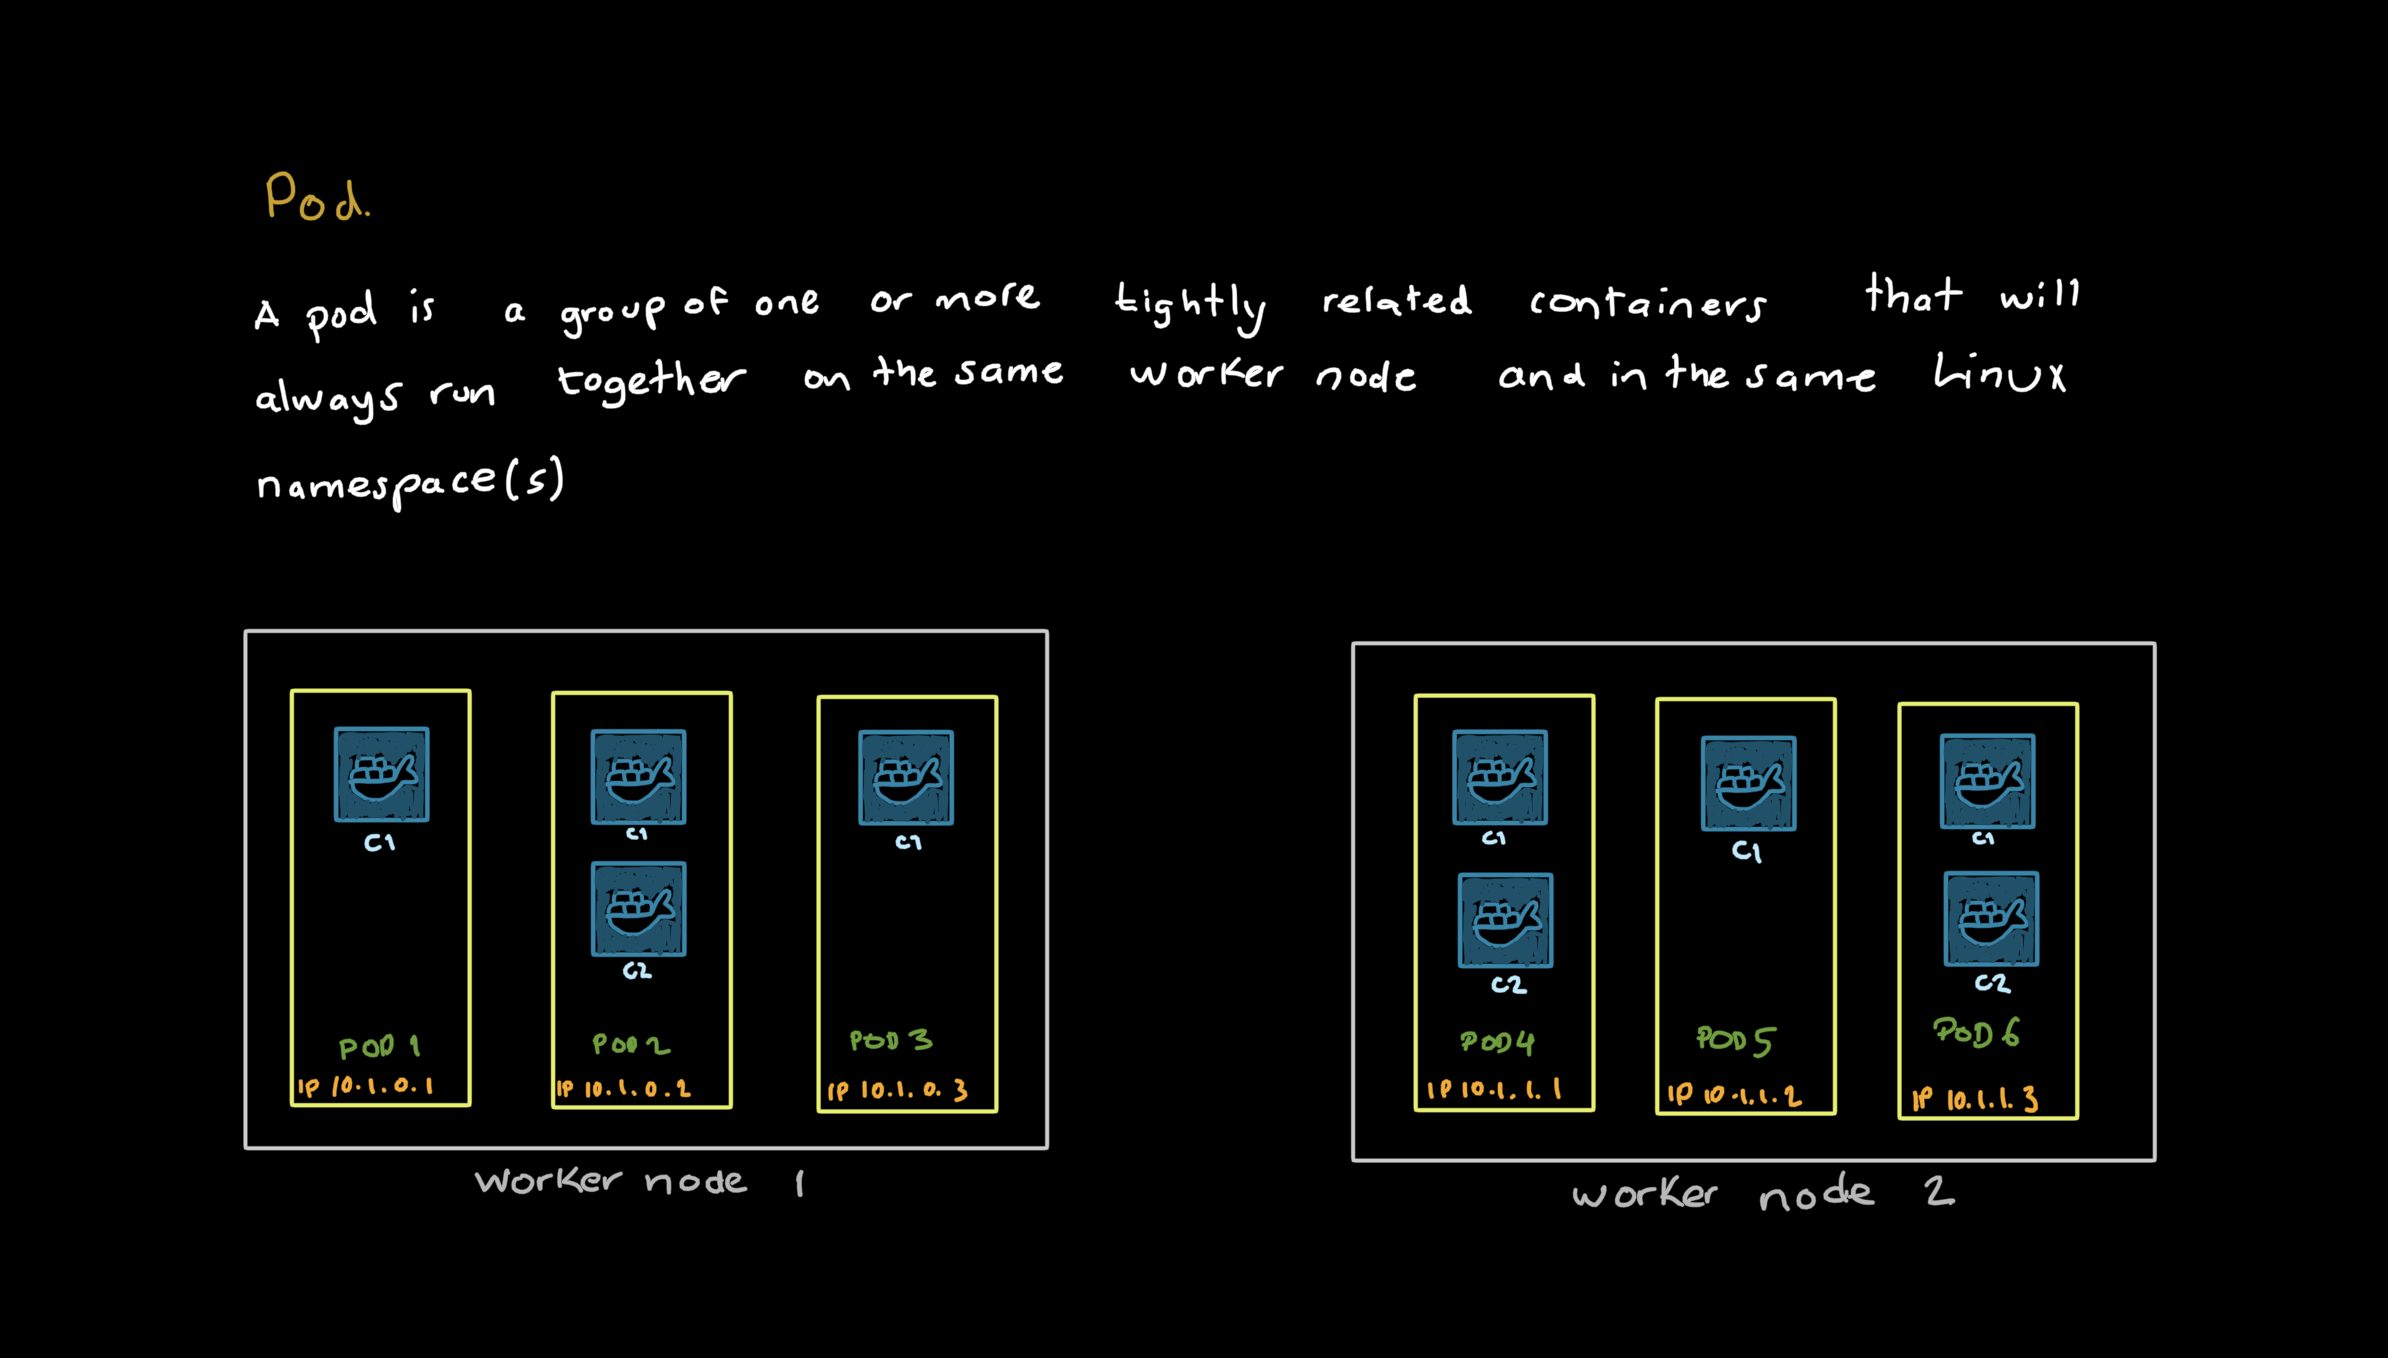 Pod.
A pod is a group of one or more tightly related containers that will
always run together on the same worker node and in the same Linux
namespace(s)
C1
POD 1
IP 10.1.0.1
C1
C2
POD 2
IP 10.1.0.2
C1
POD 3
IP 10.1.0.3
worker node 1
C1
C2
POD4
IP 10.1.1.1
C1
POD5
IP 10.1.1.2
C1
C2
POD 6
IP 10.1.1.3
worker node 2